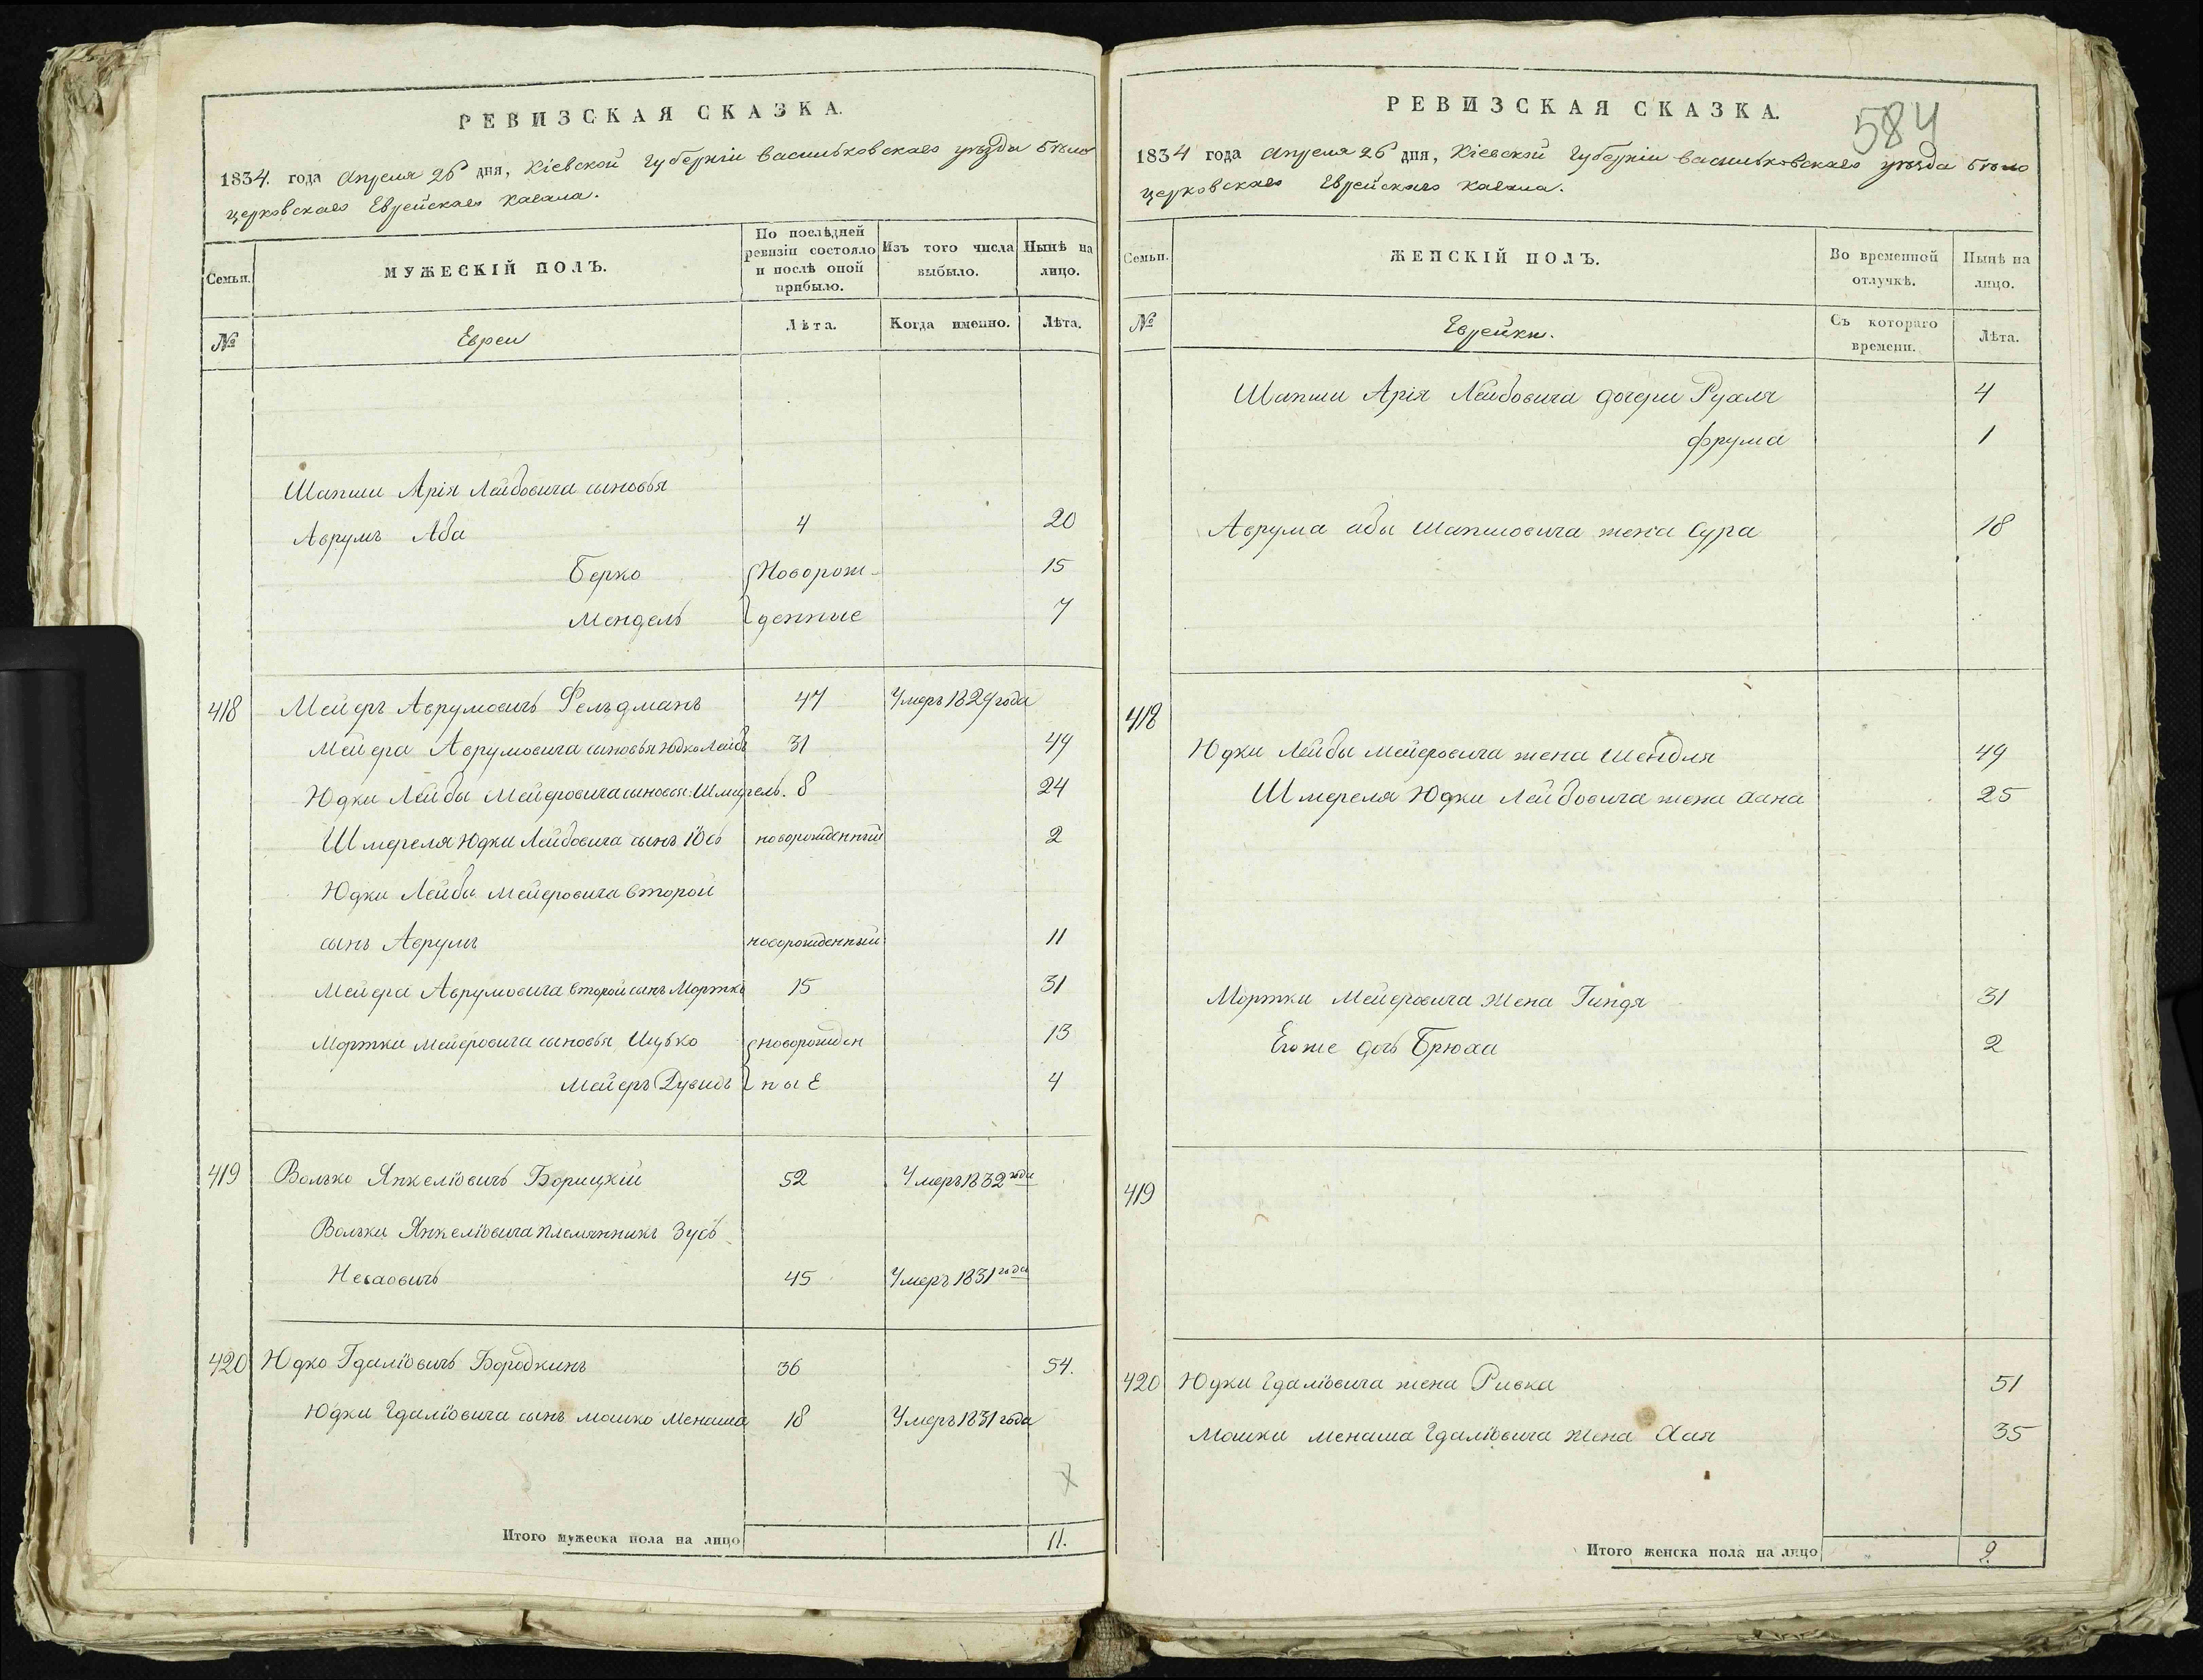 РЕВИЗСКАЯ СКАЗКА.
1834. года Апреля 26 дня, Кіевской Губерніи Васильковскаго уѣзда Бѣло
церковскаго Еврейскаго Кагала.
Семьи.
МУЖЕСКІЙ ПОЛЪ.
По послѣдней ревизіи состояло и послѣ оной прибыло.
Изъ того числа выбыло.
Нынѣ на лицо.
№
Евреи
Лѣта.
Когда именно.
Лѣта.
Шапши Арія Лейбовича сыновья
Аврумъ Аба 4 20
Берко Новорож- 15
Мендель денные 7
418 Мейеръ Аврумовичъ Фельдманъ 47 Умеръ 1829 года
Мейера Аврумовича сыновья Юдко Лейба 31 49
Юдки Лейбы Мейеровича сыновья: Шмерель. 8 24
Шмереля Юдки Лейбовича сынъ Іось новорожденный 2
Юдки Лейбы Мейеровича второй
сынъ Аврумъ новорожденный 11
Мейера Аврумовича второй сынъ Мортко 15 31
Мортки Мейеровича сыновья Ицько новорожден 13
Мейеръ Дувидъ ные 4
419 Волько Янкеліовичъ Борицкій 52 Умеръ 1832 года
Вольки Янкеліовича племянникъ Зусь
Несаовичъ 45 Умеръ 1831 года
420 Юдко Гдаліовичъ Бородкинъ 36 54.
Юдки Гдаліовича сынъ Мошко Менаша 18 Умеръ 1831 года
Х
Итого мужеска пола на лицо 11.
РЕВИЗСКАЯ СКАЗКА.
584
1834 года Апреля 26 дня, Кіевской Губерніи Васильковскаго уѣзда Бѣло
церковскаго Еврейскаго Кагала.
Семьи.
ЖЕНСКІЙ ПОЛЪ.
Во временной отлучкѣ.
Нынѣ на лицо.
№
Еврейки.
Съ котораго времени.
Лѣта.
Шапши Арія Лейбовича дочери Рухля 4
Фрума 1
Аврума Абы Шапшовича жена Сура 18
418
Юдки Лейбы Мейеровича жена Шендля 49
Шмереля Юдки Лейбовича жена Хана 25
Мортки Мейеровича жена Гиндя 31
Егоже дочь Брюха 2
419
420 Юдки Гдаліовича жена Ривка 51
Мошки Менаша Гдаліовича жена Хая 35
Итого женска пола на лицо 9